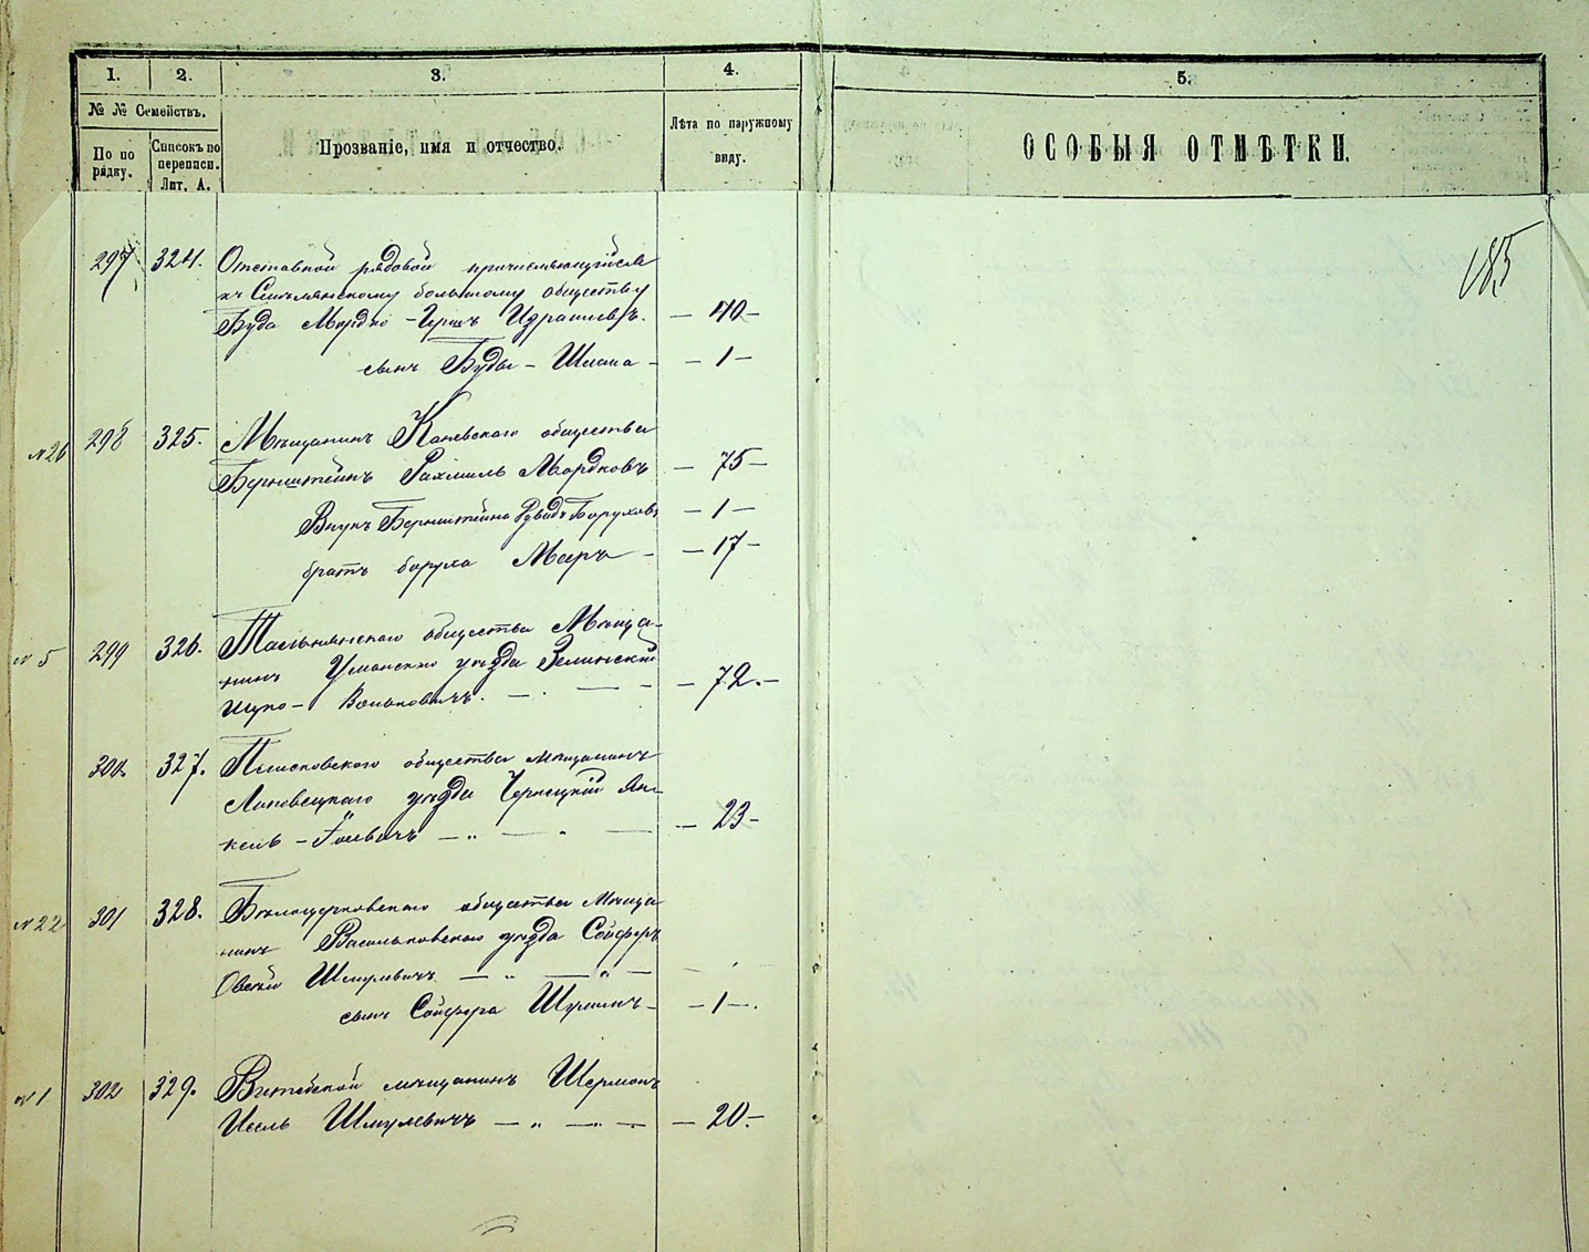 1. 2. 3. 4. 5.
№ № Семействъ.
По по рядку.
Списокъ по переписи. Лит. А.
Прозваніе, имя и отчество.
Лѣта по наружному виду.
ОСОБЫЯ ОТМѢТКИ.
185
297 324. Отставной рядовой причисляющійся
къ обществу
Буда Мордко - Гершъ Израилевъ. — 40 —
сынъ Буды - Шлома — — 1 —
№ 26 298 325. Мѣщанинъ Каневскаго общества
Бернштейнъ Рахмиль Мордковъ — 75 —
Внукъ Бернштейна Борухов — 1 —
братъ боруха Меръ — — 17 —
№ 5 299 326. Тальнянскаго общества Мѣща-
нинъ Уманскаго уѣзда Зелинскій
— — — 72. —
300. 327. общества мѣщанинъ
Липовецкаго уѣзда Чернецкій Ян-
кель - — „ — „ — — 23 —
№ 22 301 328. Бѣлоцерковскаго общества Мѣща
нинъ Васильковскаго уѣзда Сойферъ
Овсей Шмулевичъ — „ — „ —
сынъ Сойфера — — 1 —.
№ 1 302 329. Витебской мѣщанинъ Шерманъ
Шмулевичъ — „ — „ — — 20. —